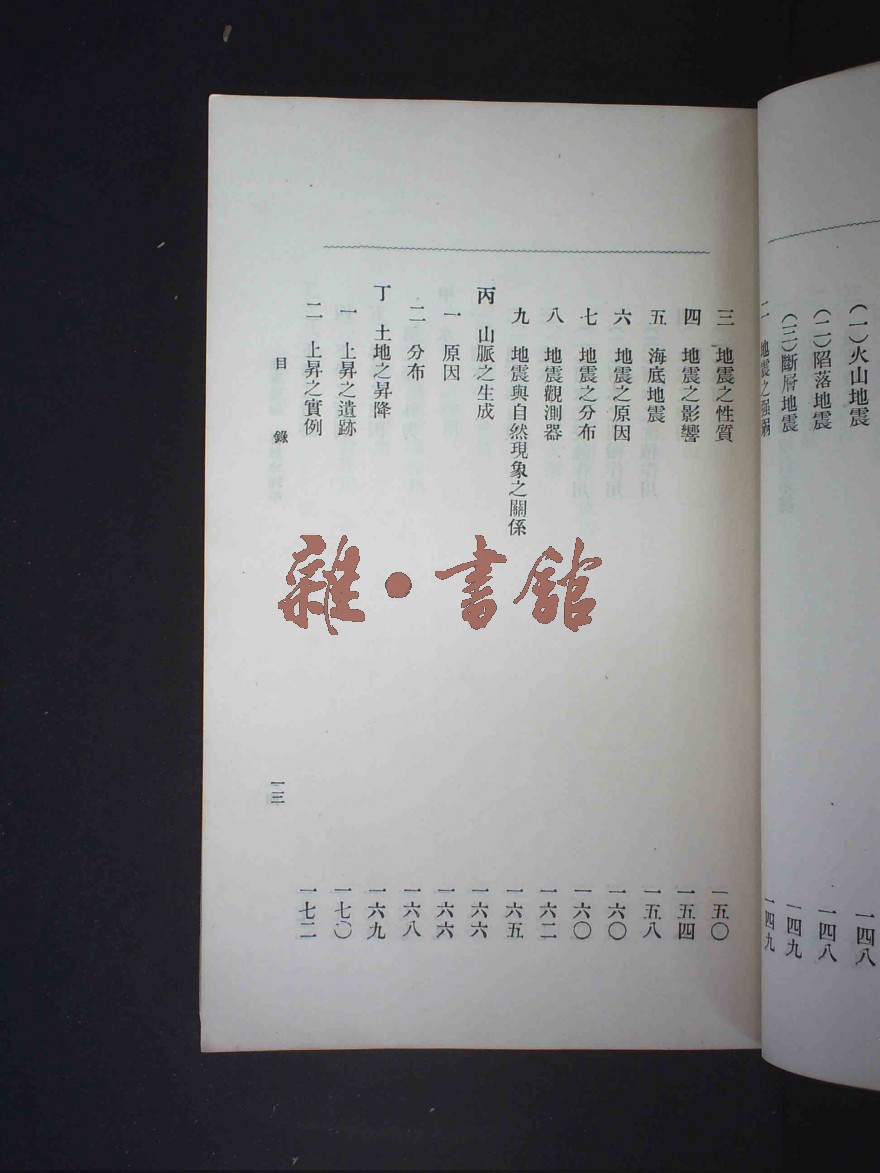 (一)火山地震 一四八
(二)陷落地震 一四八
(三)斷層地震 一四九
二 地震之强弱 一四九
三 地震之性質 一五〇
四 地震之影響 一五四
五 海底地震 一五八
六 地震之原因 一六〇
七 地震之分布 一六〇
八 地震觀測器 一六二
九 地震與自然現象之關係 一六五
丙 山脈之生成 一六六
一 原因 一六六
二 分布 一六八
丁 土地之昇降 一六九
一 上昇之遺跡 一七〇
二 上昇之實例 一七二
目 錄 一三
雜·書館